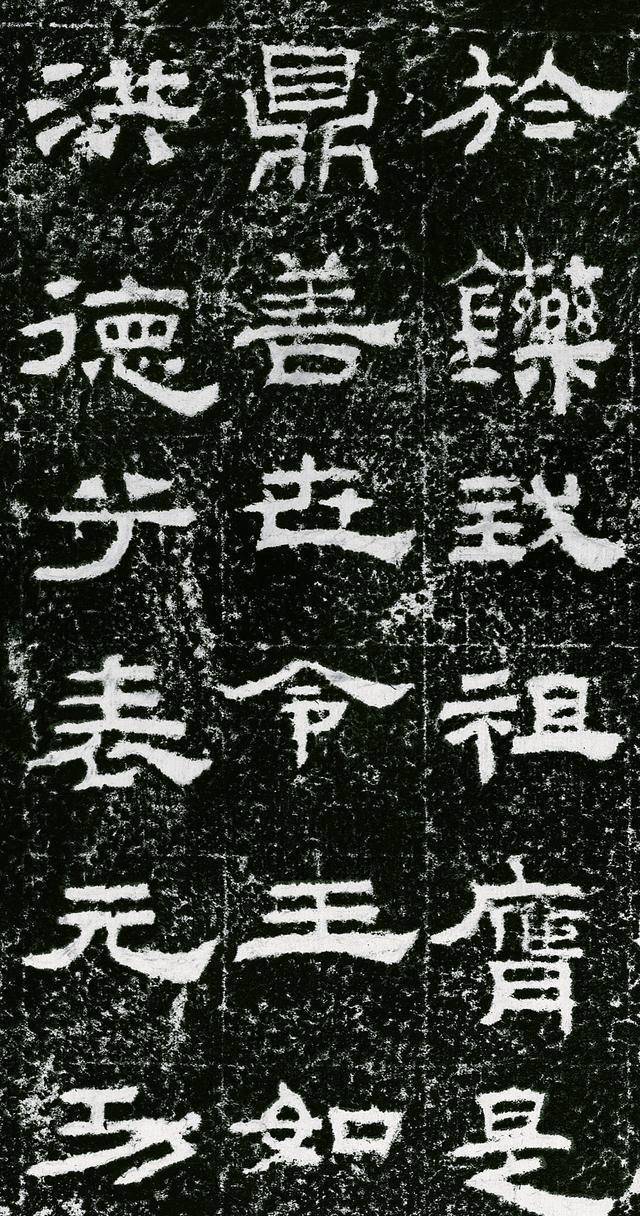 於鑠我祖膺是
鼎善世令王如
洪德于表元功